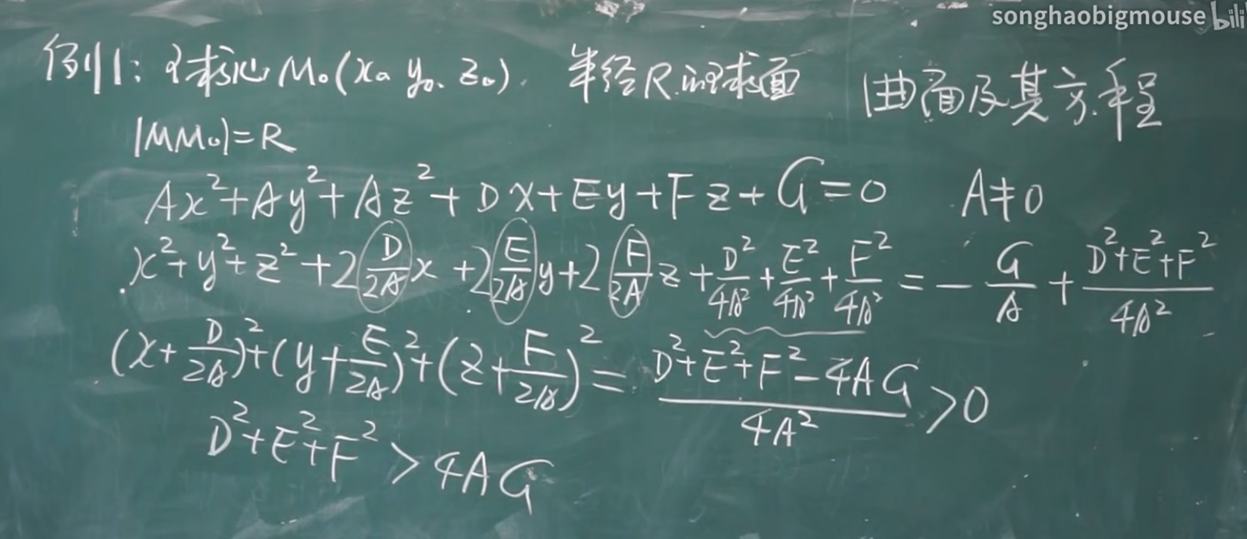 songhaobigmouse bili
例1: 球心 M₀(x₀, y₀, z₀). 半径R的球面
曲面及其方程
|MM₀|=R
Ax²+Ay²+Az²+Dx+Ey+Fz+G=0 A≠0
x²+y²+z²+2 D/2A x +2 E/2A y+2 F/2A z + D²/4A² + E²/4A² + F²/4A² = - G/A + (D²+E²+F²)/4A²
(x+ D/2A)²+(y+ E/2A)²+(z+ F/2A)² = (D²+E²+F²-4AG)/4A² >0
D²+E²+F² > 4AG